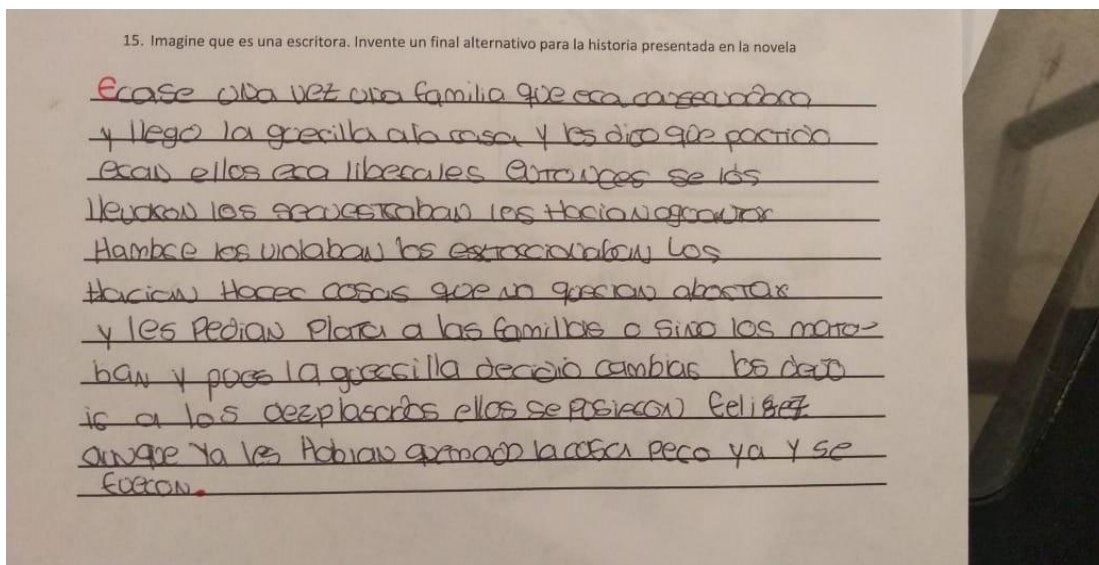 15. Imagine que es una escritora. Invente un final alternativo para la historia presentada en la novela
Erase una vez una familia que era conservadora
y llego la guerilla a la casa y les dijo que partido
eran ellos era liberales entonces se los
llevaron los secuestraban les Hacian aguantar
Hambre los violaban los estorcionaban Los
Hacian Hacer cosas que no querian abortar
y les pedian plata a las familias o sino los mata-
ban y pues la guersilla decidio cambiar los dejo
ir a los dezplasados ellos se pusieron felisez
aunque ya les Habian quemado la casa pero ya y se
fueron.